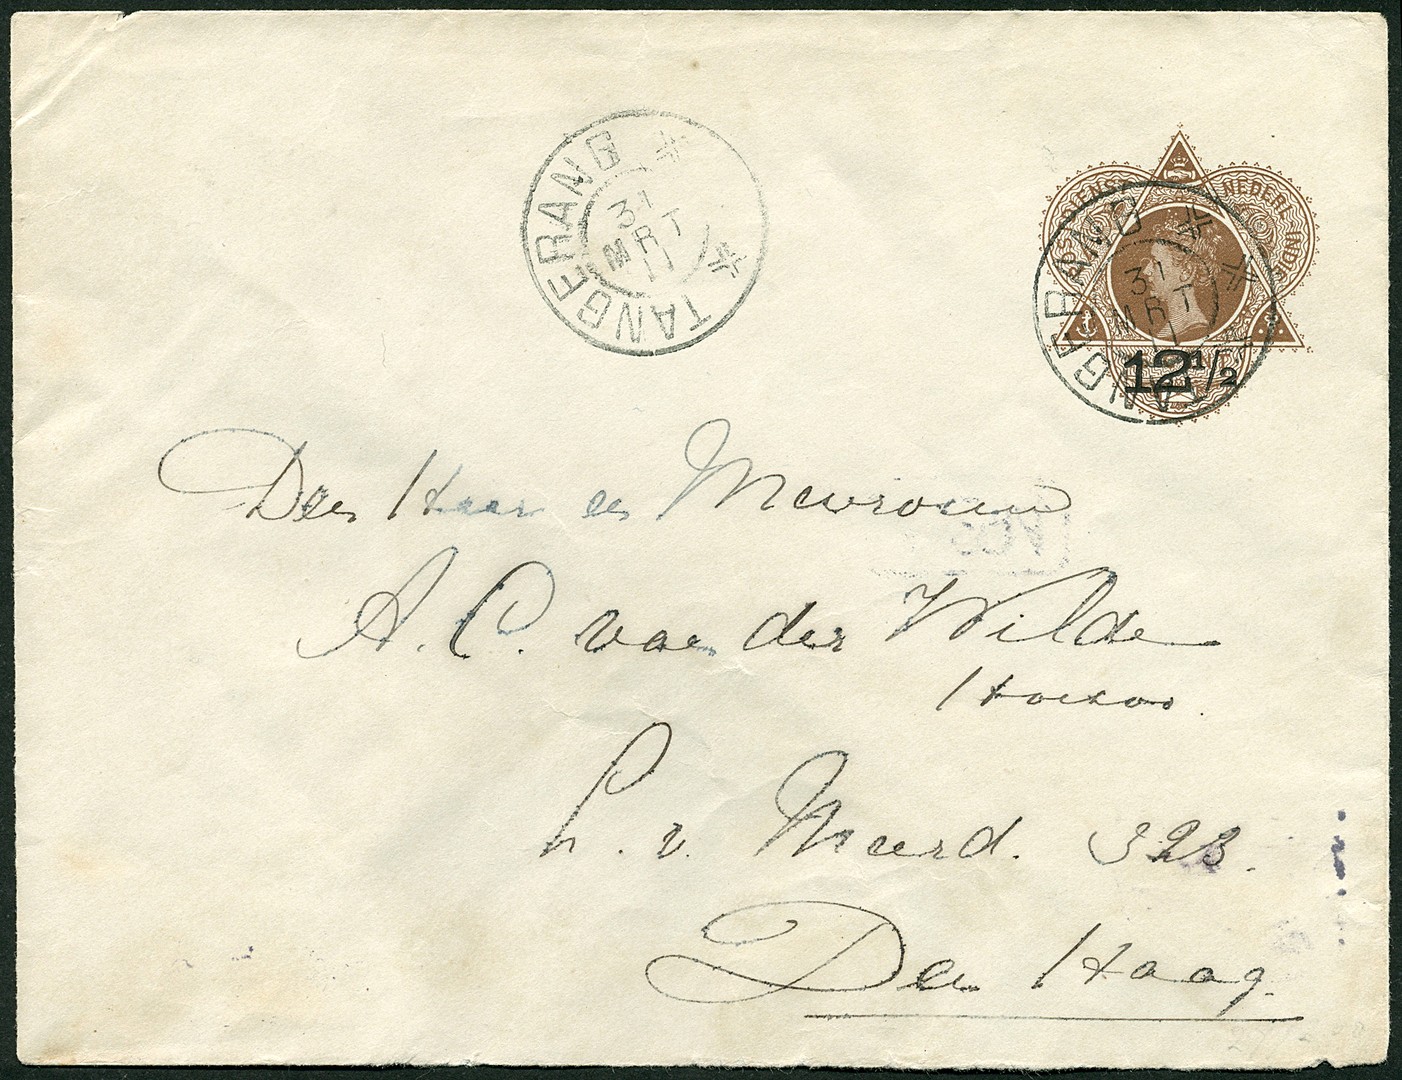 TANGERANG
31
MRT
11
DIENST NEDERL INDIE
TANGERANG
31
MRT
11
12 1/2
Den Heer en Mevrouw
A. C. van der Wilde
L. v. Meerd. 323.
Den Haag.